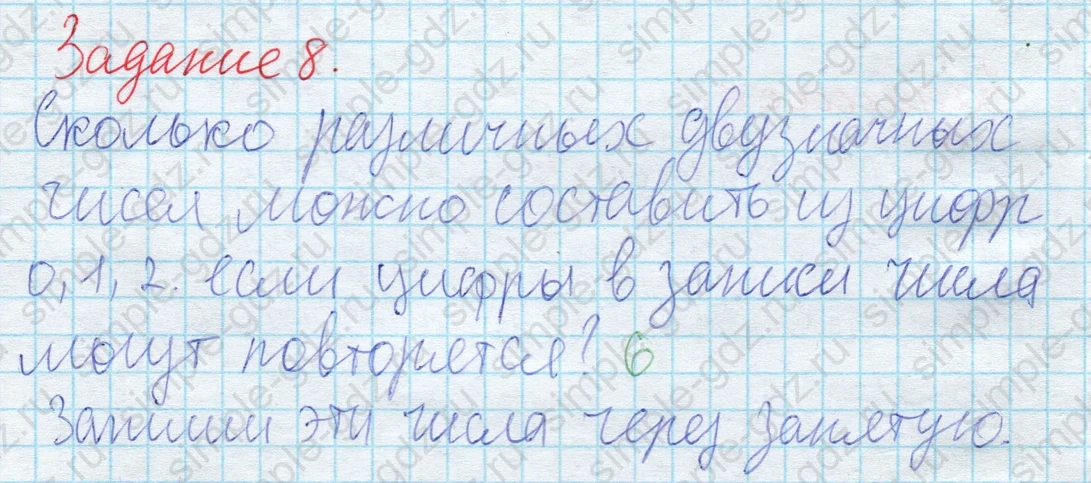 Задание 8.
Сколько различных двузначных
чисел можно составить из цифр
0, 1, 2. если цифры в записи числа
могут повторятся? 6
Запиши эти числа через запятую.